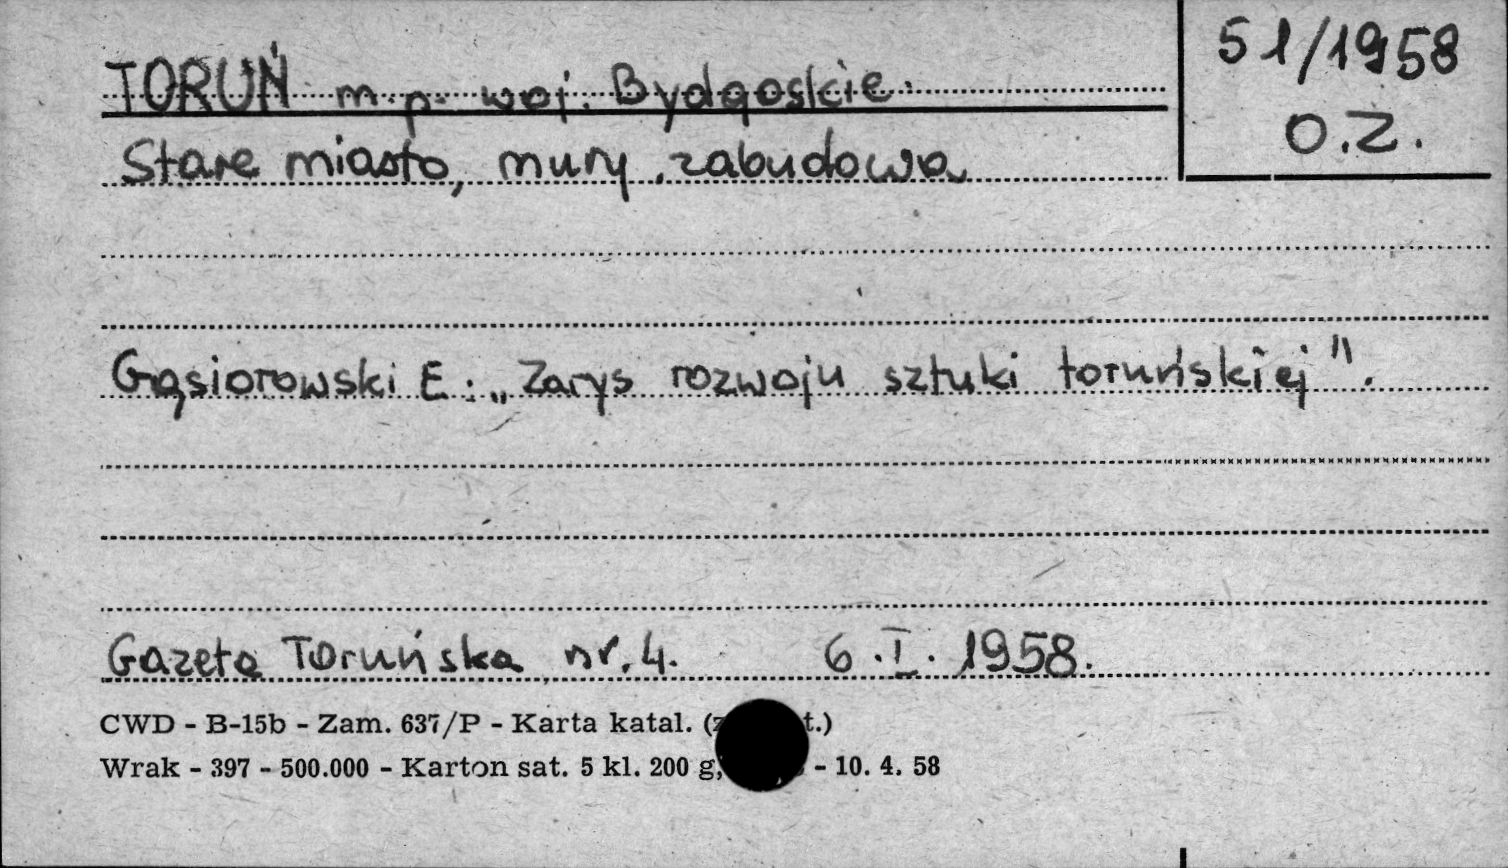 TORUŃ m.p. woj. Bydgoskie.
51/1958
O.Z.
Stare miasto, mury, zabudowa
Gąsiorowski E: „Zarys rozwoju sztuki toruńskiej".
Gazeta Toruńska nr. 4. 6.I.1958.
CWD - B-15b - Zam. 637/P - Karta katal. (z t.)
Wrak - 397 - 500.000 - Karton sat. 5 kl. 200 g, - 10. 4. 58